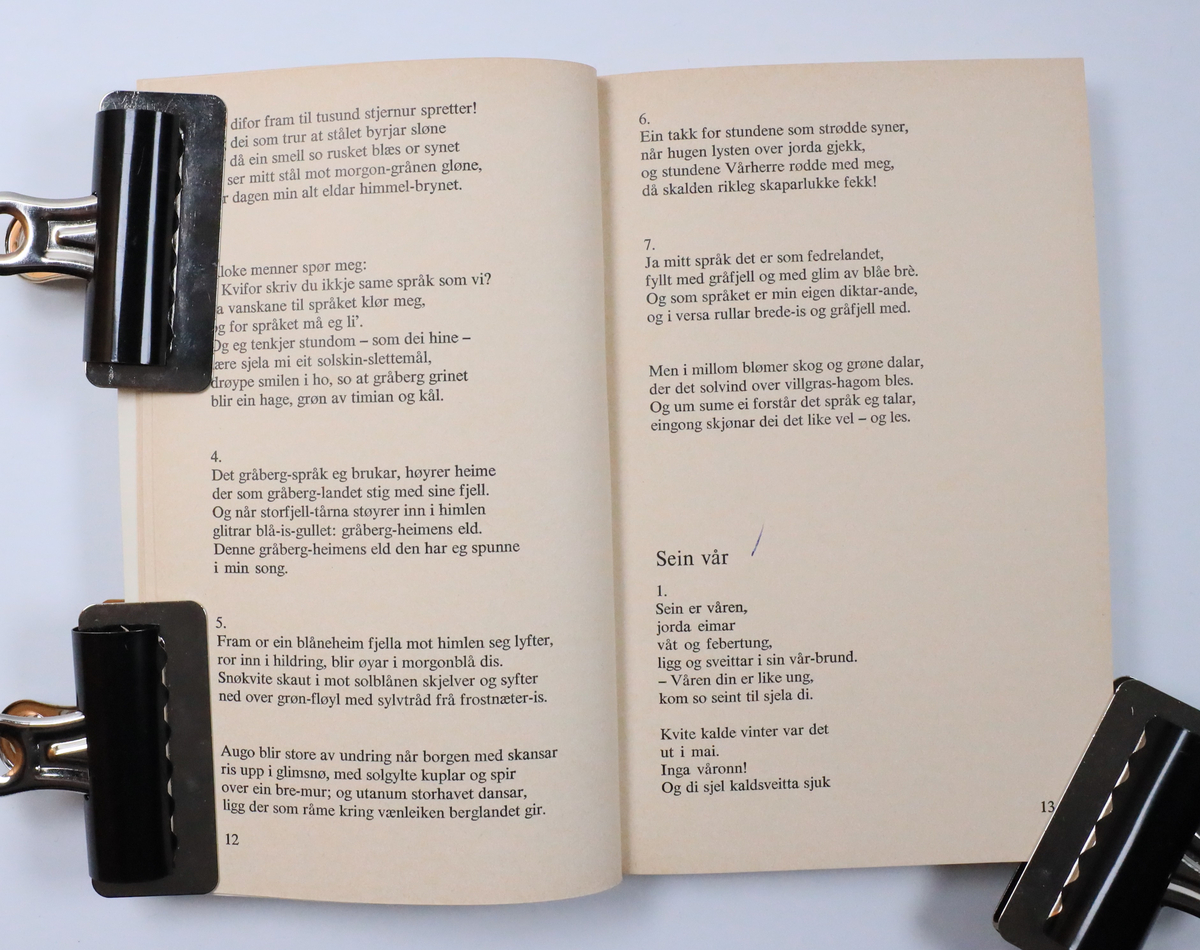 difor fram til tusund stjernur spretter!
dei som trur at stålet byrjar sløne
då ein smell so rusket blæs or synet
ser mitt stål mot morgon-grånen gløne,
dagen min alt eldar himmel-brynet.
menner spør meg:
Kvifor skriv du ikkje same språk som vi?
vanskane til språket klør meg,
for språket må eg li'.
Og eg tenkjer stundom – som dei hine –
sjela mi eit solskin-slettemål,
drøype smilen i ho, so at gråberg grinet
blir ein hage, grøn av timian og kål.
4.
Det gråberg-språk eg brukar, høyrer heime
der som gråberg-landet stig med sine fjell.
Og når storfjell-tårna støyrer inn i himlen
glitrar blå-is-gullet: gråberg-heimens eld.
Denne gråberg-heimens eld den har eg spunne
i min song.
5.
Fram or ein blåneheim fjella mot himlen seg lyfter,
ror inn i hildring, blir øyar i morgonblå dis.
Snøkvite skaut i mot solblånen skjelver og syfter
ned over grøn-fløyl med sylvtråd frå frostnæter-is.
Augo blir store av undring når borgen med skansar
ris upp i glimsnø, med solgylte kuplar og spir
over ein bre-mur; og utanum storhavet dansar,
ligg der som råme kring vænleiken berglandet gir.
12
6.
Ein takk for stundene som strødde syner,
når hugen lysten over jorda gjekk,
og stundene Vårherre rødde med meg,
då skalden rikleg skaparlukke fekk!
7.
Ja mitt språk det er som fedrelandet,
fyllt med gråfjell og med glim av blåe brè.
Og som språket er min eigen diktar-ande,
og i versa rullar brede-is og gråfjell med.
Men i millom blømer skog og grøne dalar,
der det solvind over villgras-hagom bles.
Og um sume ei forstår det språk eg talar,
eingong skjønar dei det like vel – og les.
Sein vår
1.
Sein er våren,
jorda eimar
våt og febertung,
ligg og sveittar i sin vår-brund.
– Våren din er like ung,
kom so seint til sjela di.
Kvite kalde vinter var det
ut i mai.
Inga våronn!
Og di sjel kaldsveitta sjuk
13